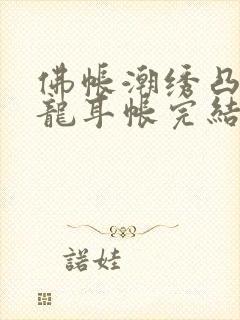 佛帐潮绣凸
龍耳帐完結
諾娃